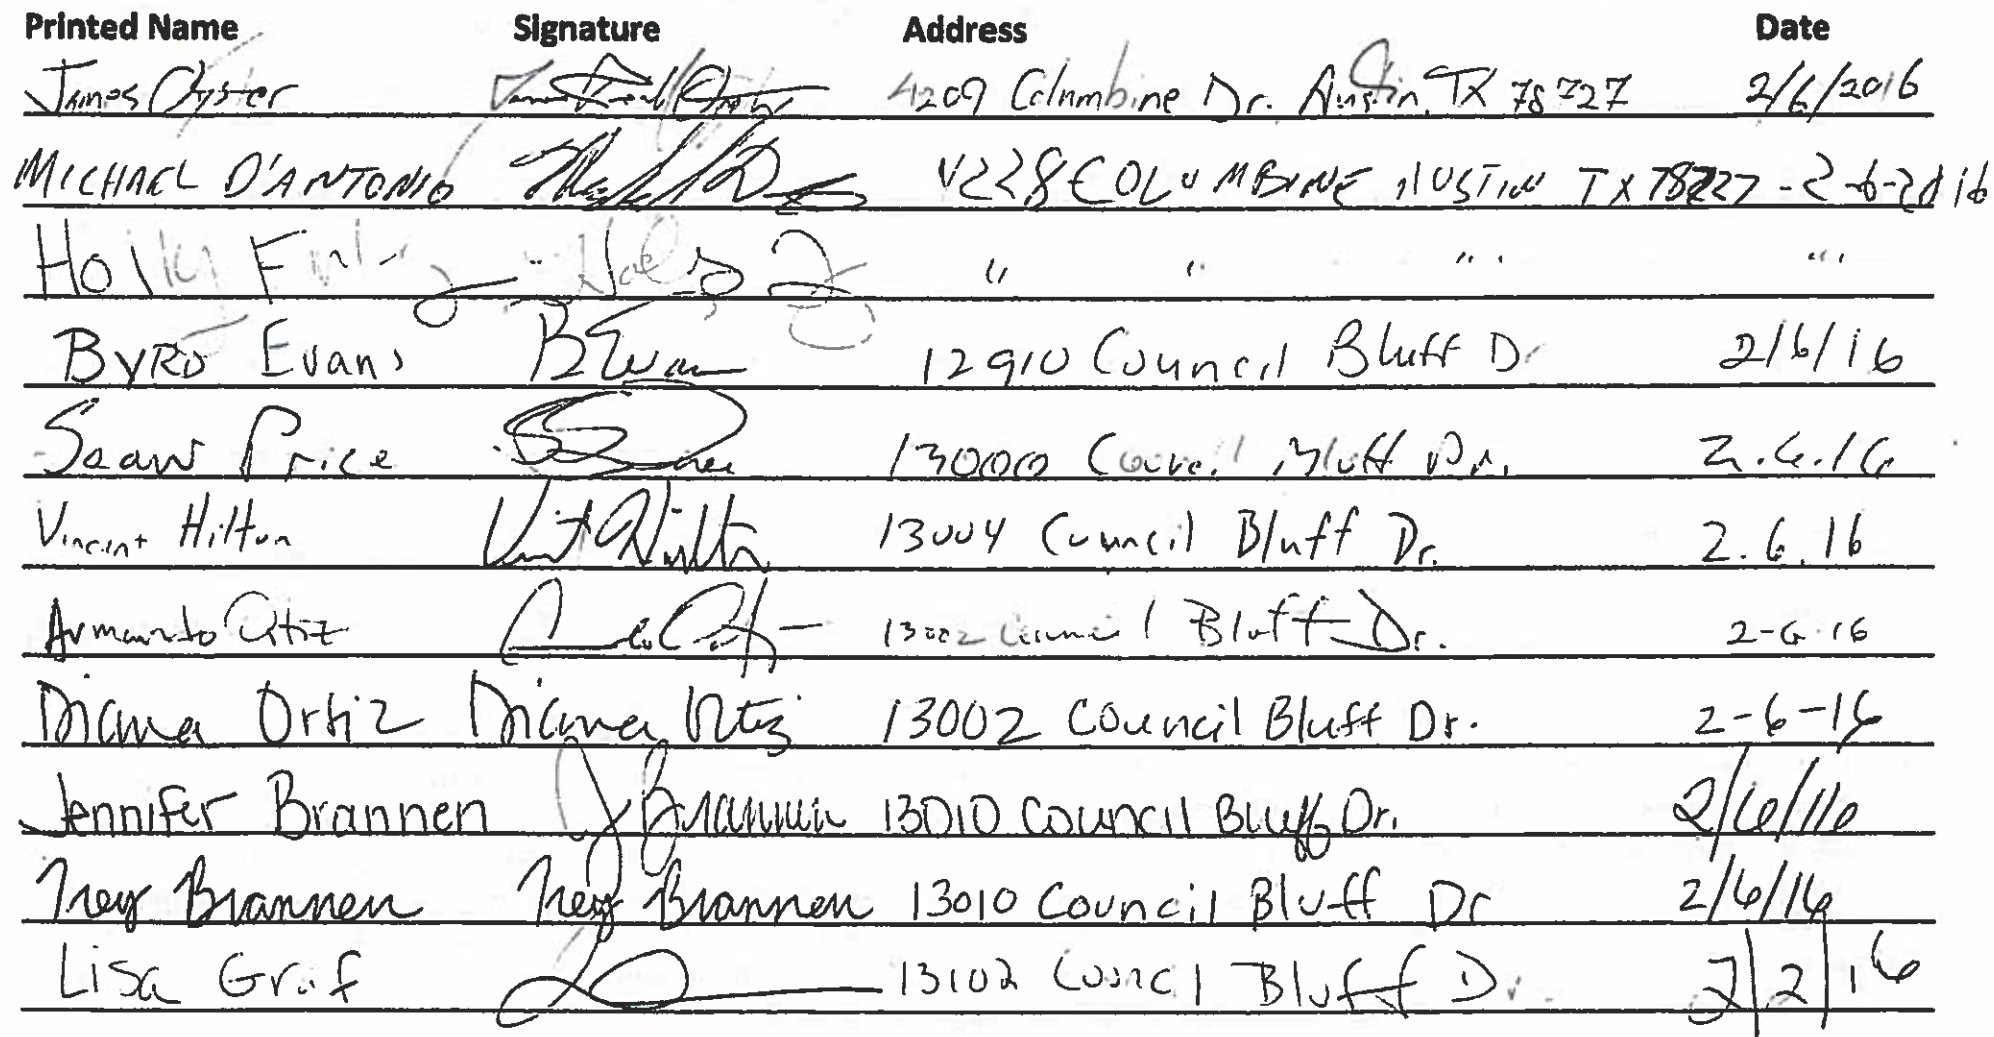 Printed Name Signature Address Date
James Oyster 4209 Columbine Dr. Austin, TX 78727 2/6/2016
MICHAEL D'ANTONIO 4228 COLUMBINE AUSTIN TX 78727 - 2-6-2016
Holly " " " " "
Byro Evans BEvan 12910 Council Bluff Dr 2/6/16
Sean Price 13000 Council Bluff Dr. 2.6.16
Vincent Hilton Vincent Hilton 13004 Council Bluff Dr. 2.6.16
Armando Ortiz 13002 Council Bluff Dr. 2-6-16
Diana Ortiz Diana Ortiz 13002 Council Bluff Dr. 2-6-16
Jennifer Brannen J Brannen 13010 Council Bluff Dr. 2/6/16
Trey Brannen Trey Brannen 13010 Council Bluff Dr 2/6/16
Lisa Graf 13102 Council Bluff Dr. 2/2/16